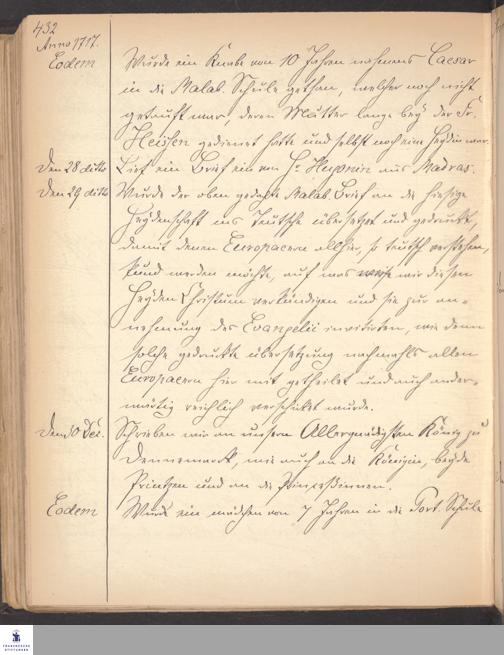 432
Anno 1717.
Eodem Wurde ein Knabe von 10 Jahren nahmens Caesar
in die Malab. Schule gethan, welcher noch nicht
getauft war, deren Mutter lange bey der Fr.
Heisen gedienet hatte und selbst noch eine Heydin war.
Den 28 ditto Lief ein Brief ein von H. aus Madras.
Den 29 ditto Wurde der oben gedachte Malab. Brief an die hiesige
Heydenschaft ins Teutsche übersetzet und gedruckt,
damit denen Europaeern allhier, so teutsch verstehen,
kund werden möchte, auf was weise wir diesen
Heyden Christum verkündigen und sie zur an-
nehmung des Evangelii invitirten, wie denn
solche gedruckte übersetzung nachmahls allen
Europaeern hier mit getheilet und auch ander-
wärtig reichlich verschicket wurde.
Den 30 Dec. Schrieben wir an unsern Allergnädigsten König zu
Dennemarck, wie auch an die Königin, beyde
Printzen und an die Printzeßinnen.
Eodem Wurde ein mädchen von 7 Jahren in die Port. Schule
FRANCKESCHE
STIFTUNGEN